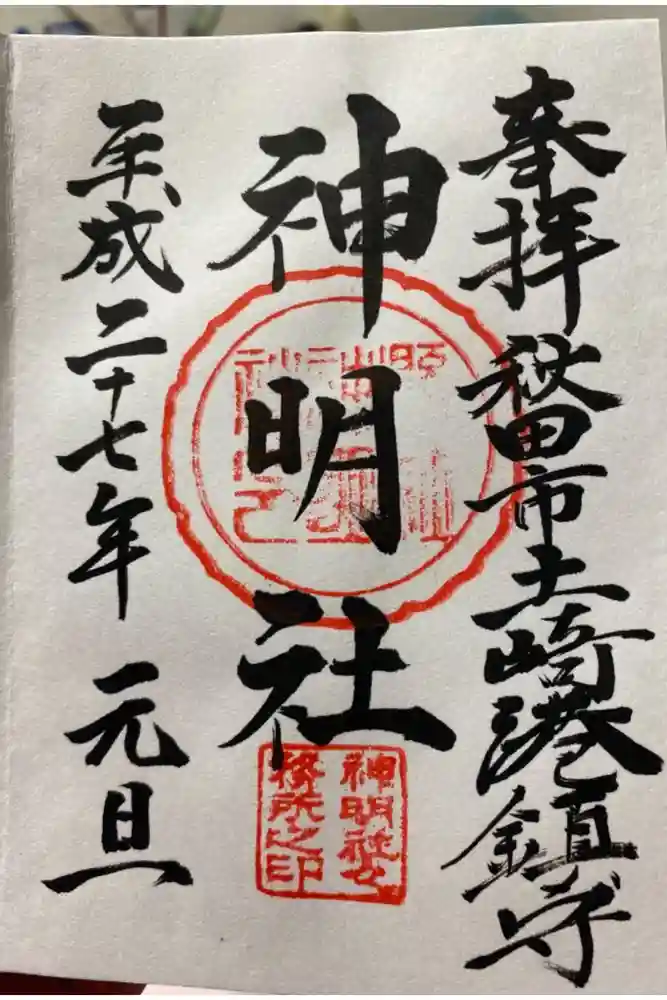 奉拝 秋田市土崎港鎮守
神明社
平成二十七年 元旦
神明社社
務所之印